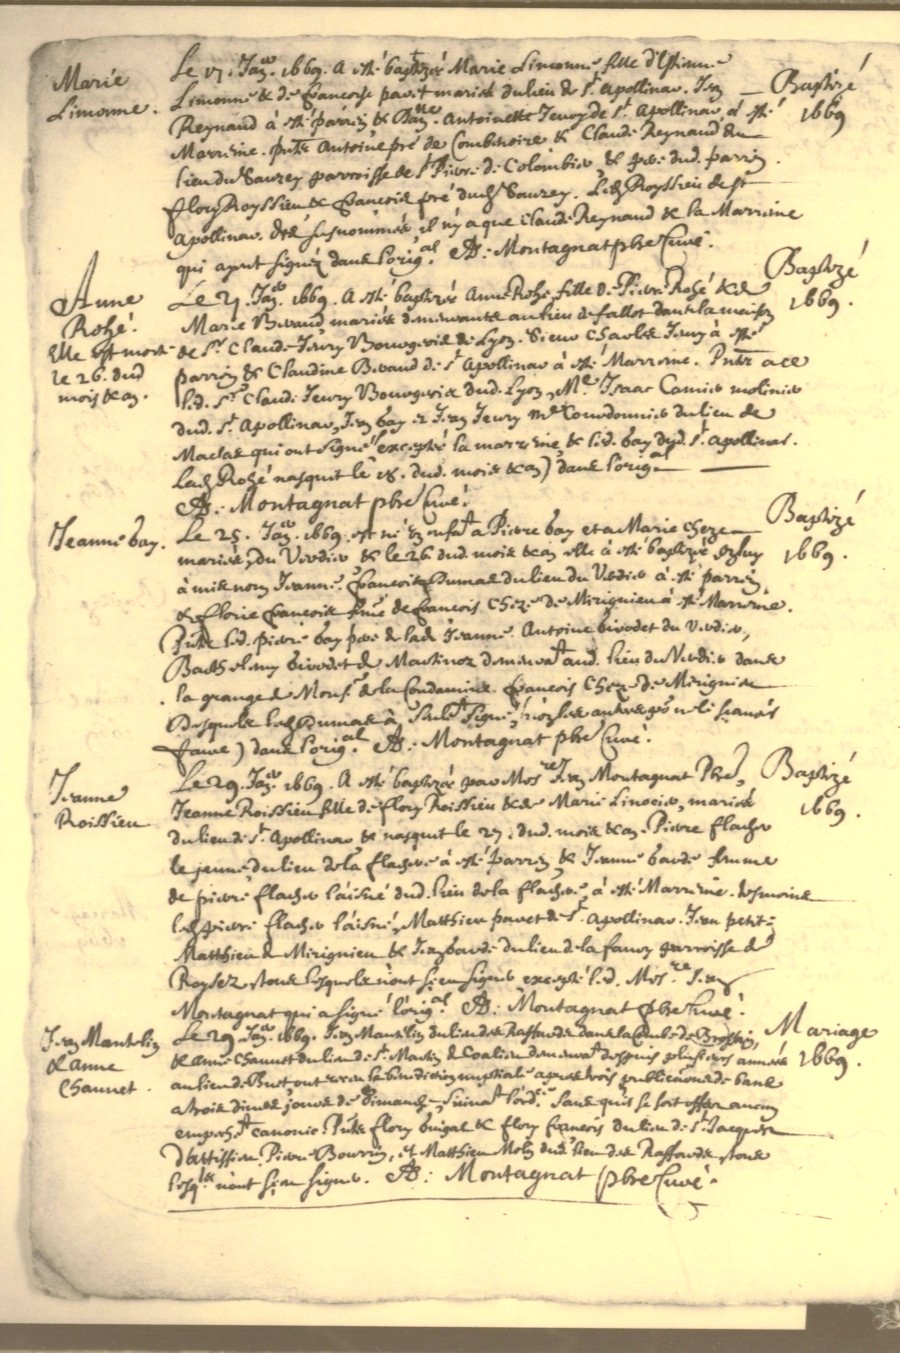 Marie
Limonne.
Le 17. Jan.er 1669. A esté baptizée Marie Limonne fille d'Estienne
Limonne & de francoise pavet mariés du lieu de St. Apollinar. Jean
Baptizé
1669
Reynaud à esté parrin & Antoinette Jeury de St. Apollinar à esté
Marrine. pnts Antoine pré de Combenoire & Claude Reynaud du
lieu du Sauzey parroisse de St. Pierre de Colombier & pere dud. parrin.
flory Royssieu & francois pré dud. Sauzey. Royssieu de St
Apollinar. susnommés il n'y a que Claude Reynaud & la Marrine
qui ayent signéz dans l'orig.al A: Montagnat pbre Curé.
Anne
Rohé.
Elle est morte
le 26. dud
mois & an.
Le 21. Jan.er 1669. A esté baptizée Anne Rohé fille de Pierre Rohé & de
Baptizé
1669.
Marie Bivaud mariés demeurants au lieu de fallot dans la maison
de Sr. Claude Jeury Bourgeois de Lyon. Sieur Charles Jeury à esté
parrin & Claudine Bivaud de St. Apollinar à esté Marrine. Pnts a ce
led. Sr. Claude Jeury Bourgeois dud. Lyon, Me. Isaac Camier molinier
dud. St. Apollinar, Jean bay & Jean Jeury me. Courdonnier du lieu de
Maclas qui ont signé (excepté la marrine & led. bay dud. St. Apollinar.
Lad. Rohé nasquit le 18. dud. mois & an) dans l'orig.al
A: Montagnat pbre Curé.
Jeanne bay.
Le 25. Jan.er 1669. est né un enfat a Pierre bay et a Marie Cheze
Baptizé
1669.
mariés, du Verdier & le 26. dud. mois & an elle à esté baptizée & luy
à mis nom Jeanne. francois Dumas du lieu du Verdier à esté parrin
& florie francoise de francois Cheze de Mirignieu à esté Marrine.
Pnts led. pierre bay pere de lade Jeanne. Antoine bivodet du Verdier,
Barthelemy bivodet de Martinoz demeurat aud. lieu du Verdier dans
la grange de Monsr. de la Condamine. francois Cheze de Mirignieu
Desquels led. Dumas à seulet signé, les autres pour ne le scavoir
faire) dans l'orig.al A: Montagnat pbre Curé.
Jeanne
Roissieu
Le 29. Jan.er 1669. A esté baptizée par Mosre Jean Montagnat Pbre,
Baptizé
1669.
Jeanne Roissieu fille de flory Roissieu & de Marie Linocier, mariés
du lieu de St. Apollinar & nasquit le 27. dud. mois & an. Pierre flacher
le jeune du lieu de la flachere à esté parrin & Jeanne bardé femme
de pierre flacher l'aisné dud. lieu de la flachere, à esté Marrine.
led. pierre flacher l'aisné, Matthieu pavet de St. Apollinar. Jean petit:
Matthieu de Mirignieu & Jean du lieu de la faury parroisse de
Roysez, tous lesquels n'ont sceu signer excepté led. Mosre. Jean
Montagnat qui a signé l'orig.al A: Montagnat pbre Curé.
Jean Mantelin
& anne
Channet.
Le 29 Jan.er 1669. Jean Mantelin du lieu des Raffardes dans la
Mariage
1669.
& anne Channet du lieu de St. Martin de Coalieu demeurat despuis plusieurs années
au lieu de Buet ont receu la benediction nuptiale apres trois publications de bans
a trois divers jours de dimanche, sans qu'il se soit aucun
empeschet. canonic. Pnts flory buigas & flory francois du lieu de St. Jacques
D'attissieu. Pierre Bourrin, et Matthieu du lieu des Raffardes, tous
lesqls n'ont sceu signer. A: Montagnat pbre Curé.